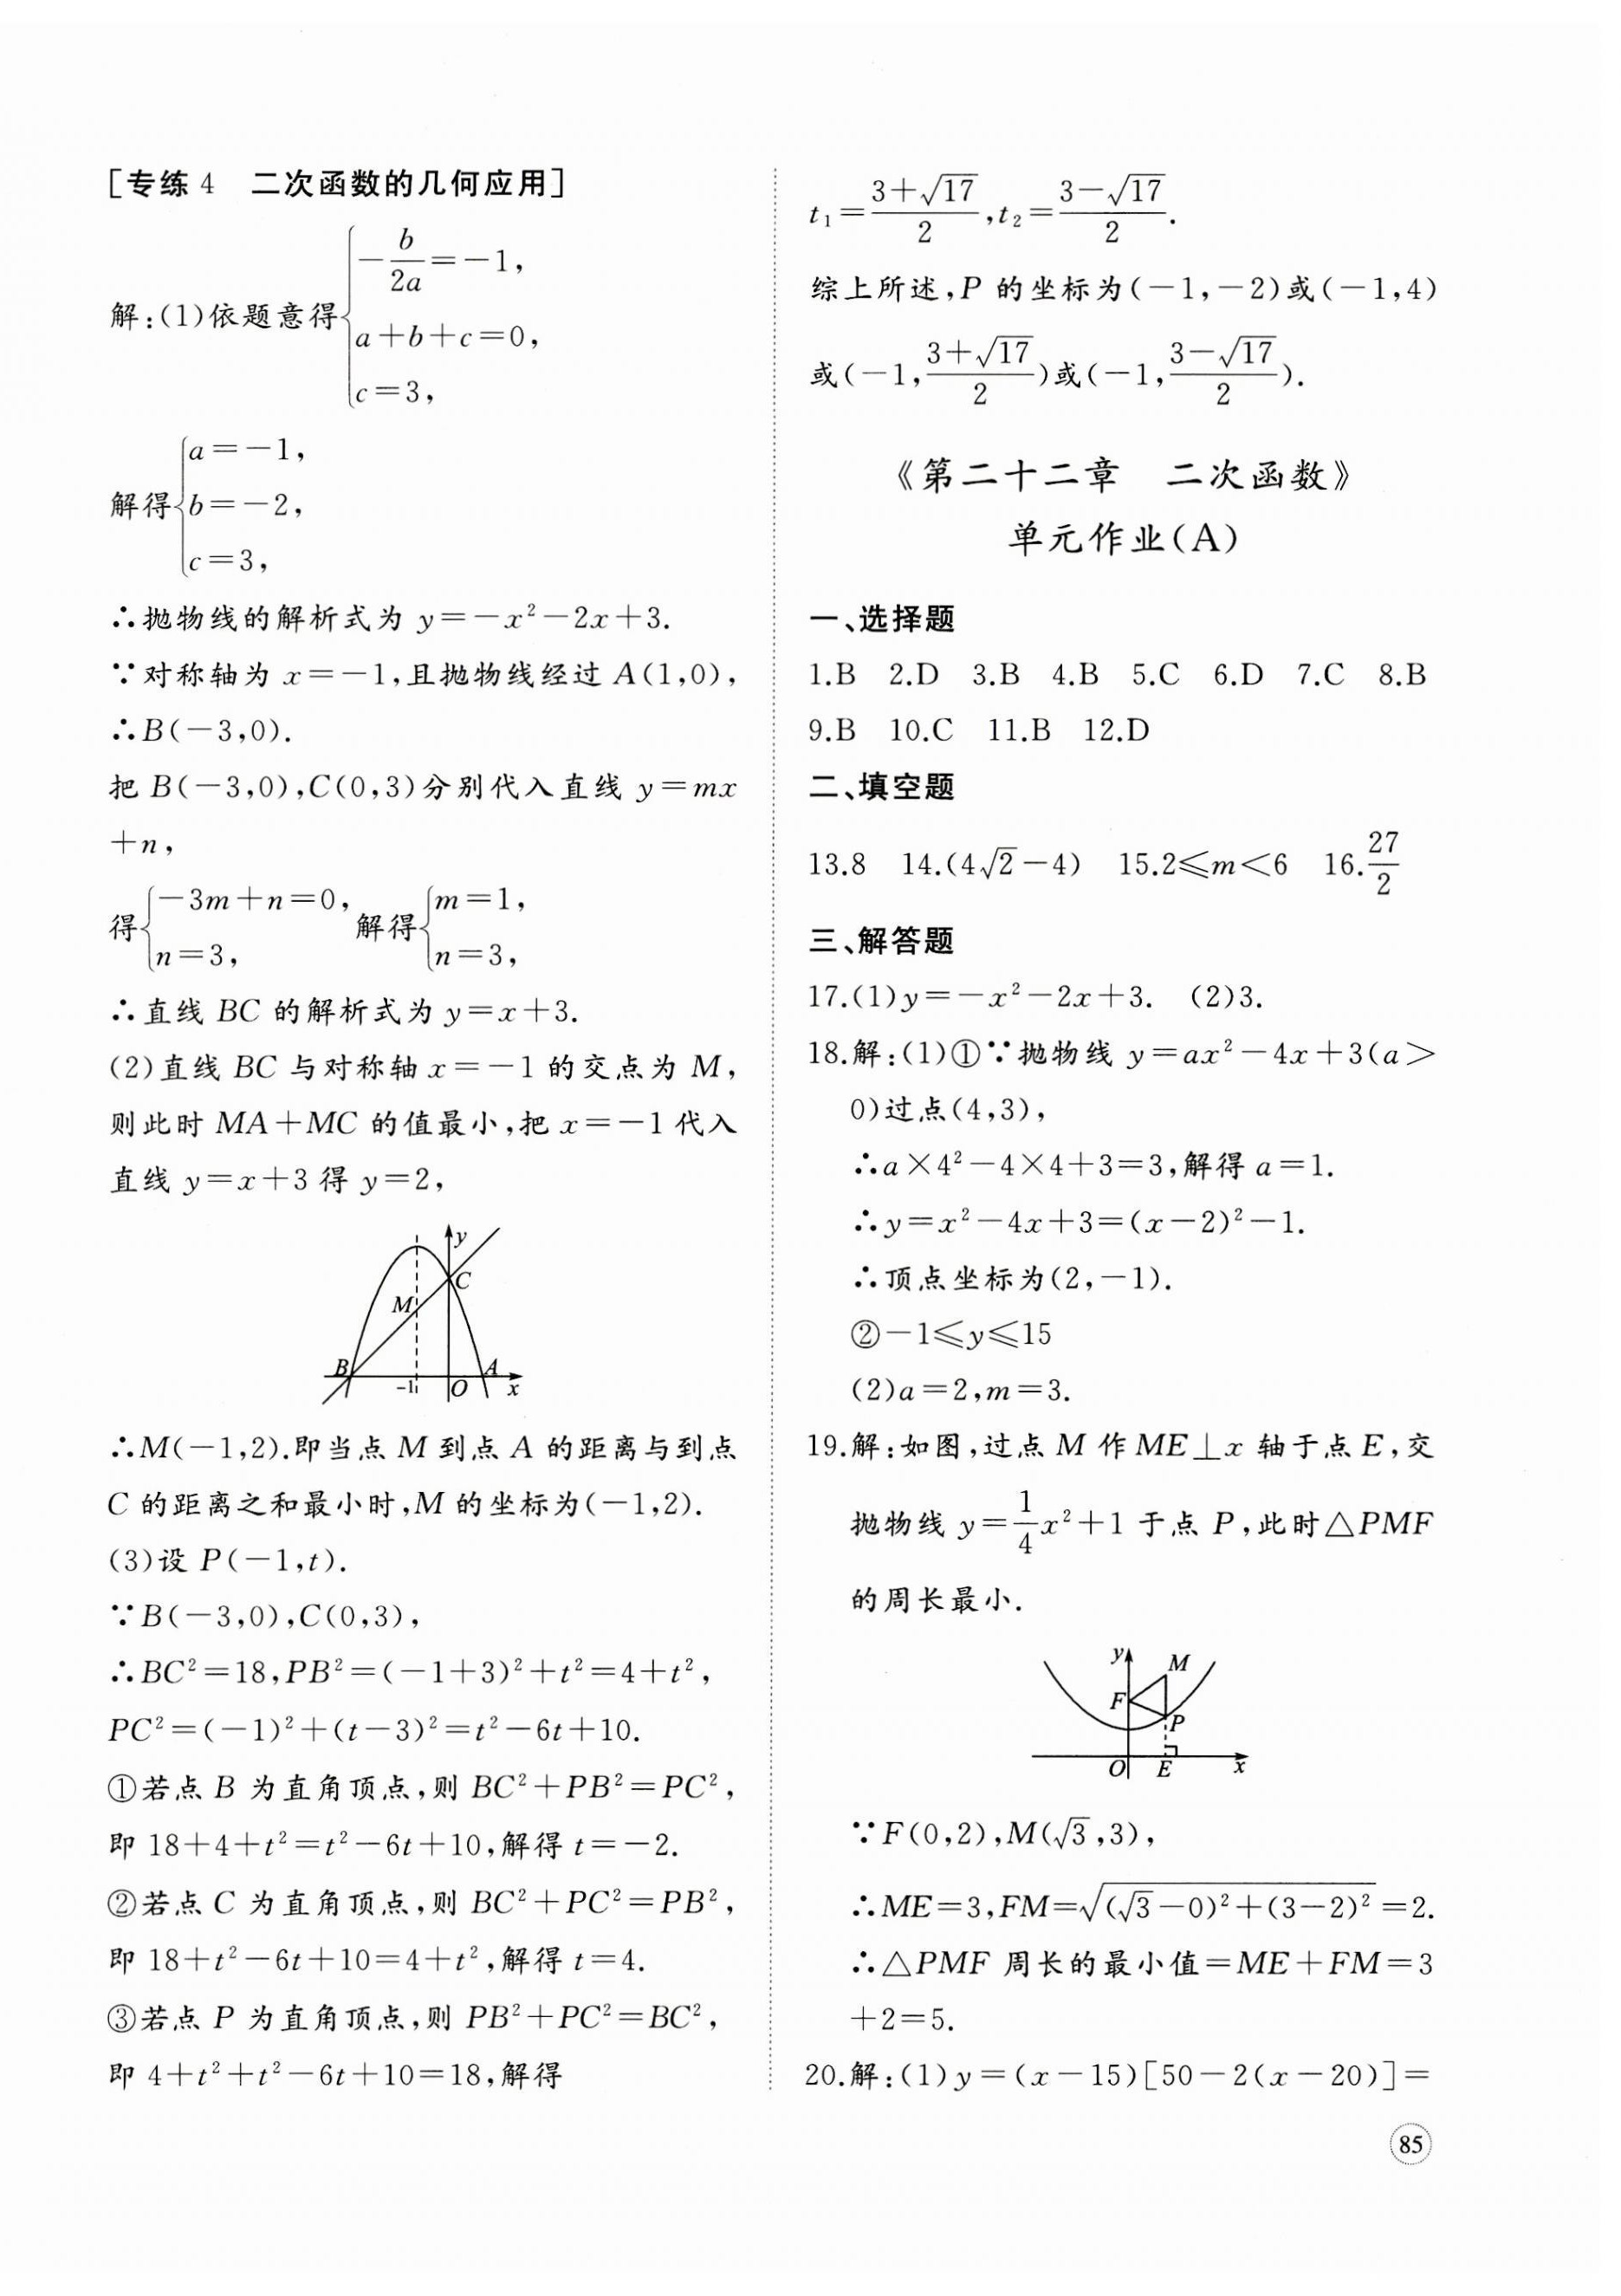 [专练4 二次函数的几何应用]
解:(1)依题意得{-b/2a=-1,
a+b+c=0,
c=3,
解得{a=-1,
b=-2,
c=3,
∴抛物线的解析式为 y=-x²-2x+3.
∵对称轴为 x=-1,且抛物线经过 A(1,0),
∴B(-3,0).
把 B(-3,0),C(0,3)分别代入直线 y=mx
+n,
得{-3m+n=0, n=3, 解得{m=1, n=3,
∴直线 BC 的解析式为 y=x+3.
(2)直线 BC 与对称轴 x=-1 的交点为 M,
则此时 MA+MC 的值最小,把 x=-1 代入
直线 y=x+3 得 y=2,
y
C
M
B
A
-1
O
x
∴M(-1,2).即当点 M 到点 A 的距离与到点
C 的距离之和最小时,M 的坐标为(-1,2).
(3)设 P(-1,t).
∵B(-3,0),C(0,3),
∴BC²=18,PB²=(-1+3)²+t²=4+t²,
PC²=(-1)²+(t-3)²=t²-6t+10.
①若点 B 为直角顶点,则 BC²+PB²=PC²,
即 18+4+t²=t²-6t+10,解得 t=-2.
②若点 C 为直角顶点,则 BC²+PC²=PB²,
即 18+t²-6t+10=4+t²,解得 t=4.
③若点 P 为直角顶点,则 PB²+PC²=BC²,
即 4+t²+t²-6t+10=18,解得
t₁=(3+√17)/2,t₂=(3-√17)/2.
综上所述,P 的坐标为(-1,-2)或(-1,4)
或(-1,(3+√17)/2)或(-1,(3-√17)/2).
《第二十二章 二次函数》
单元作业(A)
一、选择题
1.B 2.D 3.B 4.B 5.C 6.D 7.C 8.B
9.B 10.C 11.B 12.D
二、填空题
13.8 14.(4√2-4) 15.2≤m<6 16.27/2
三、解答题
17.(1)y=-x²-2x+3. (2)3.
18.解:(1)①∵抛物线 y=ax²-4x+3(a>
0)过点(4,3),
∴a×4²-4×4+3=3,解得 a=1.
∴y=x²-4x+3=(x-2)²-1.
∴顶点坐标为(2,-1).
②-1≤y≤15
(2)a=2,m=3.
19.解:如图,过点 M 作 ME⊥x 轴于点 E,交
抛物线 y=1/4x²+1 于点 P,此时△PMF
的周长最小.
y
M
F
P
O
E
x
∵F(0,2),M(√3,3),
∴ME=3,FM=√((√3-0)²+(3-2)²)=2.
∴△PMF 周长的最小值=ME+FM=3
+2=5.
20.解:(1)y=(x-15)[50-2(x-20)]=
85